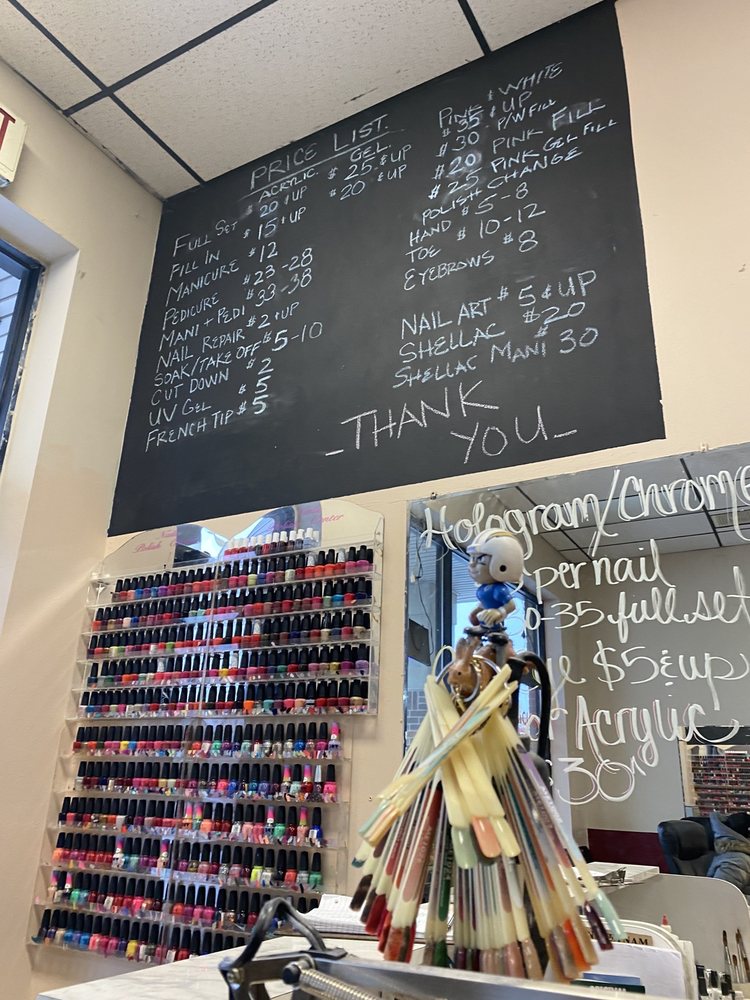 PRICE LIST
ACRYLIC GEL
FULL SET $20 & UP $25 & UP
FILL IN $15 & UP $20 & UP
MANICURE $12
PEDICURE $23-28
MANI + PEDI 33-38
NAIL REPAIR $2 & UP
SOAK/TAKE OFF $5-10
CUT DOWN $2
UV GEL $5
FRENCH TIP $5
PINK & WHITE
$35 & UP
$30 P/W FILL
$20 PINK FILL
$25 PINK GEL FILL
POLISH CHANGE
HAND $5-8
TOE $10-12
EYEBROWS $8
NAIL ART $5 & UP
SHELLAC $20
SHELLAC MANI 30
-THANK
YOU-
Hologram/Chrome
per nail
-35 full set
$5 & up
Acrylic
$30